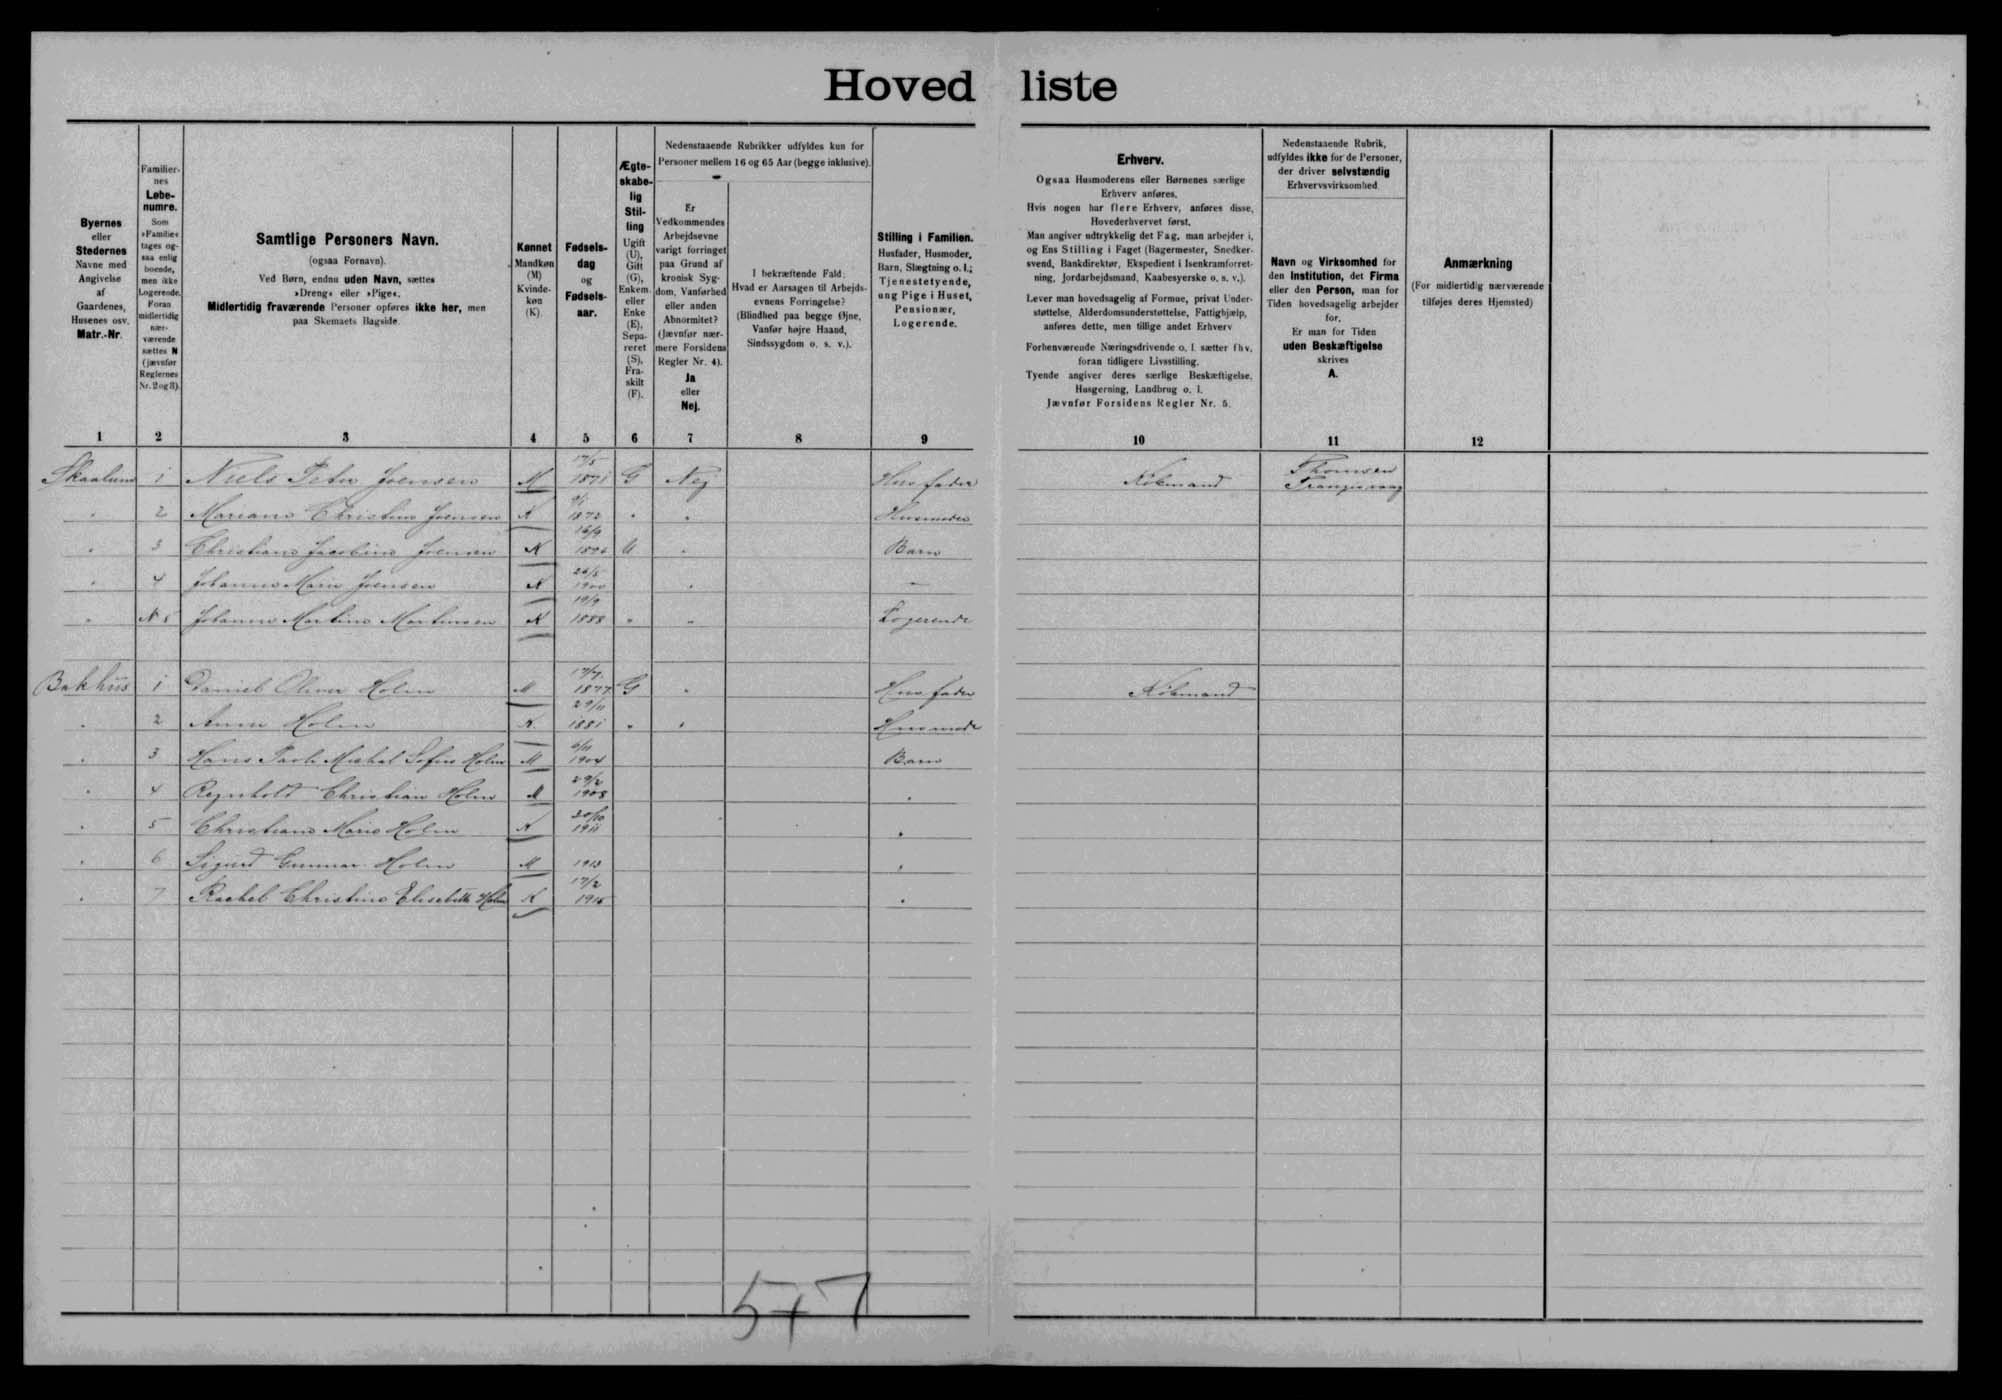 Hovedliste
Byernes
eller
Stedernes
Navne med
Angivelse
af
Gaardenes,
Husenes osv.
Matr.-Nr.
1
Familier-
nes
Løbe-
numre.
Som
»Familie«
tages og-
saa enlig
boende,
men ikke
Logerende.
Foran
midlertidig
nær-
værende
sættes N
(jævnfør
Reglernes
Nr. 2 og 3).
2
Samtlige Personers Navn.
(ogsaa Fornavn).
Ved Børn, endnu uden Navn, sættes
»Dreng« eller »Pige«.
Midlertidig fraværende Personer opføres ikke her, men
paa Skemaets Bagside.
3
Kønnet
Mandkøn
(M)
Kvinde-
køn
(K).
4
Fødsels-
dag
og
Fødsels-
aar.
5
Ægte-
skabe-
lig
Stil-
ling
Ugift
(U),
Gift
(G),
Enkem.
eller
Enke
(E),
Sepa-
reret
(S),
Fra-
skilt
(F).
6
Nedenstaaende Rubrikker udfyldes kun for
Personer mellem 16 og 65 Aar (begge inklusive).
Er
Vedkommendes
Arbejdsevne
varigt forringet
paa Grund af
kronisk Syg-
dom, Vanførhed
eller anden
Abnormitet?
(Jævnfør nær-
mere Forsidens
Regler Nr. 4).
Ja
eller
Nej.
7
I bekræftende Fald:
Hvad er Aarsagen til Arbejds-
evnens Forringelse?
(Blindhed paa begge Øjne,
Vanfør højre Haand,
Sindssygdom o. s. v.).
8
Stilling i Familien.
Husfader, Husmoder,
Barn, Slægtning o. l.;
Tjenestetyende,
ung Pige i Huset,
Pensionær,
Logerende.
9
Erhverv.
Ogsaa Husmoderens eller Børnenes særlige
Erhverv anføres.
Hvis nogen har flere Erhverv, anføres disse,
Hovederhvervet først.
Man angiver udtrykkelig det Fag, man arbejder i,
og Ens Stilling i Faget (Bagermester, Snedker-
svend, Bankdirektør, Ekspedient i Isenkramforret-
ning, Jordarbejdsmand, Kaabesyerske o. s. v.).
Lever man hovedsagelig af Formue, privat Under-
støttelse, Alderdomsunderstøttelse, Fattighjælp,
anføres dette, men tillige andet Erhverv
Forhenværende Næringsdrivende o. l. sætter fhv.
foran tidligere Livsstilling.
Tyende angiver deres særlige Beskæftigelse,
Husgerning, Landbrug o. l.
Jævnfør Forsidens Regler Nr. 5.
10
Nedenstaaende Rubrik,
udfyldes ikke for de Personer,
der driver selvstændig
Erhvervsvirksomhed
Navn og Virksomhed for
den Institution, det Firma
eller den Person, man for
Tiden hovedsagelig arbejder
for.
Er man for Tiden
uden Beskæftigelse
skrives
A.
11
Anmærkning
(For midlertidig nærværende
tilføjes deres Hjemsted)
12
Skaalum 1 Niels Peter Joensen M 17/5 1871 G Nej Husfader Købmand Thomsen Trangisvaag
" 2 Mariane Christine Joensen K 1872 " " Husmoder
" 3 Christiane Jacobine Joensen K 16/9 U " Barn
" 4 Johanne Marie Joensen K 26/5 1900 " —
" N 5 Johanne Martine Mortensen K 19/9 1888 " " Logerende
Bakhús 1 Daniel Oliver Holm M 17/7 1877 G " Husfader Købmand
" 2 Anna Holm K. 29/11 1881 " " Husmoder
" 3 Hans Paoli Michal Sofus Holm M 6/11 1904 Barn
" 4 Reynhold Christian Holm M 29/2 1908 "
" 5 Christiane Marie Holm K 20/10 1911 "
" 6 Sigurd Gunnar Holm M 1913 "
" 7 Rachel Christine Elisebeth Holm K 17/2 1916 "
5+7